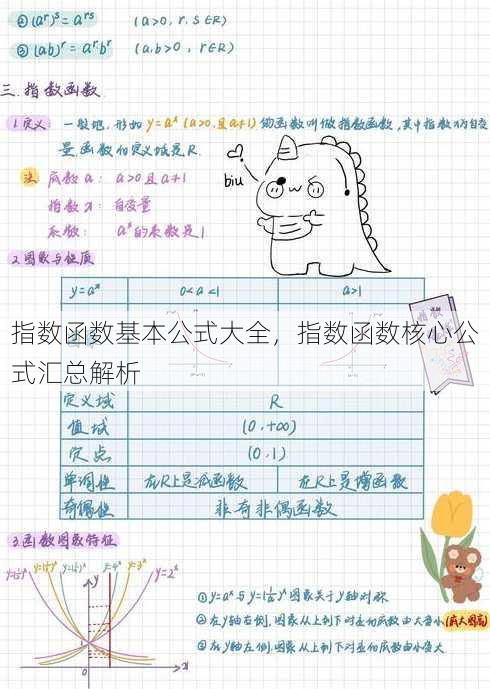 ②(aʳ)ˢ=aʳˢ (a>0, r.s∈R)
③(ab)ʳ=aʳ·bʳ (a.b>0, r∈R)
三.指数函数
1.定义: 一般地, 形如y=aˣ(a>0,且a≠1)的函数叫做指数函数, 其中指数x为自变
量,函数的定义域是R.
注 底数a: a>0且a≠1
指数x: 自变量
系数: aˣ的系数是1
biu
2.图象与性质
y=aˣ 0<a<1 a>1
指数函数基本公式大全，指数函数核心公
式汇总解析
定义域 R
值域 (0,+∞)
定点 (0,1)
单调性 在R上是减函数 在R上是增函数
奇偶性 非奇非偶函数
3.函数图象特征
y=3ˣ y=2ˣ
y
1
0
x
①y=aˣ与y=(1/a)ˣ图象关于y轴对称
②在y轴右侧,图象从上到下对应的底数由大变小(底大图高)
③在y轴左侧,图象从上到下对应的底数由小变大